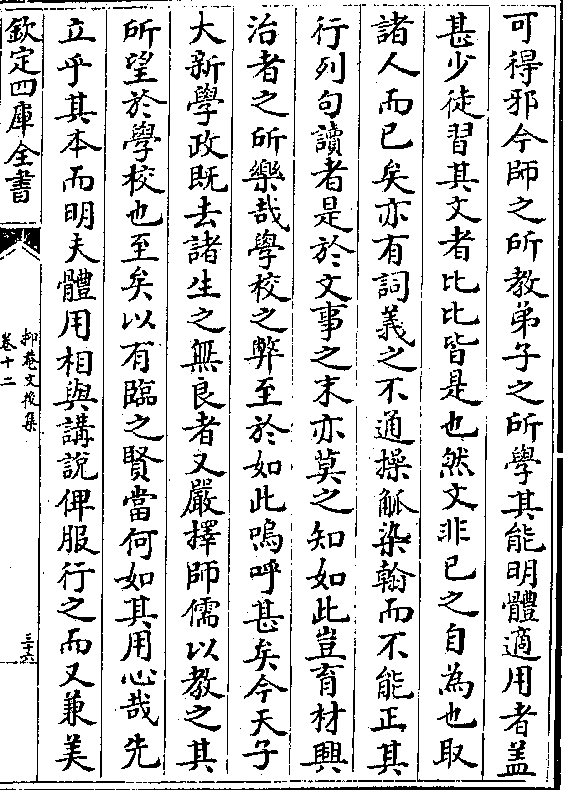 可得邪今師之所教弟子之所學其能明體適用者盖
甚少徒習其文者比比皆是也然文非已之自為也取
諸人而已矣亦有詞義之不通操觚染翰而不能正其
行列句讀者是於文事之末亦莫之知如此豈育材興
治者之所樂哉學校之弊至於如此嗚呼甚矣今天子
大新學政既去諸生之無良者又嚴擇師儒以教之其
所望於學校也至矣以有臨之賢當何如其用心哉先
立乎其本而明夫體用相與講說俾服行之而又兼美
欽定四庫全書
抑菴文後集
卷十二
三十六